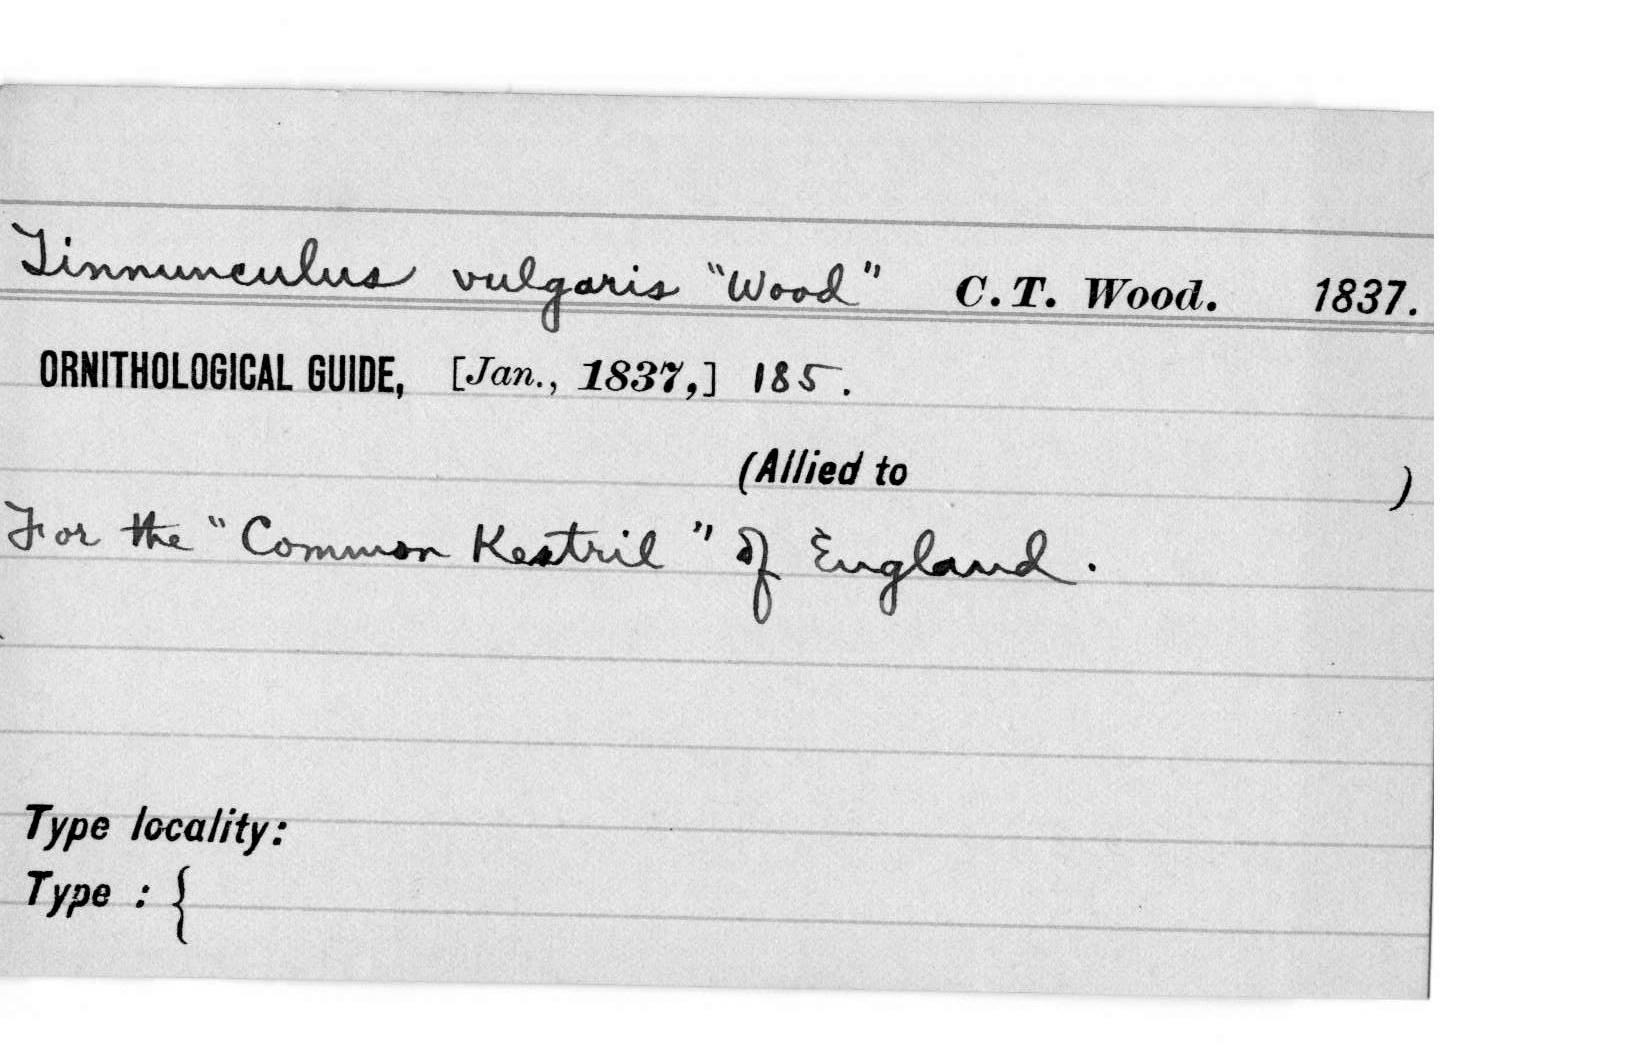 Tinnunculus vulgaris "Wood" C. T. Wood. 1837.
ORNITHOLOGICAL GUIDE, [Jan., 1837,] 185.
(Allied to )
For the "Common Kestril" of England.
Type locality:
Type : {